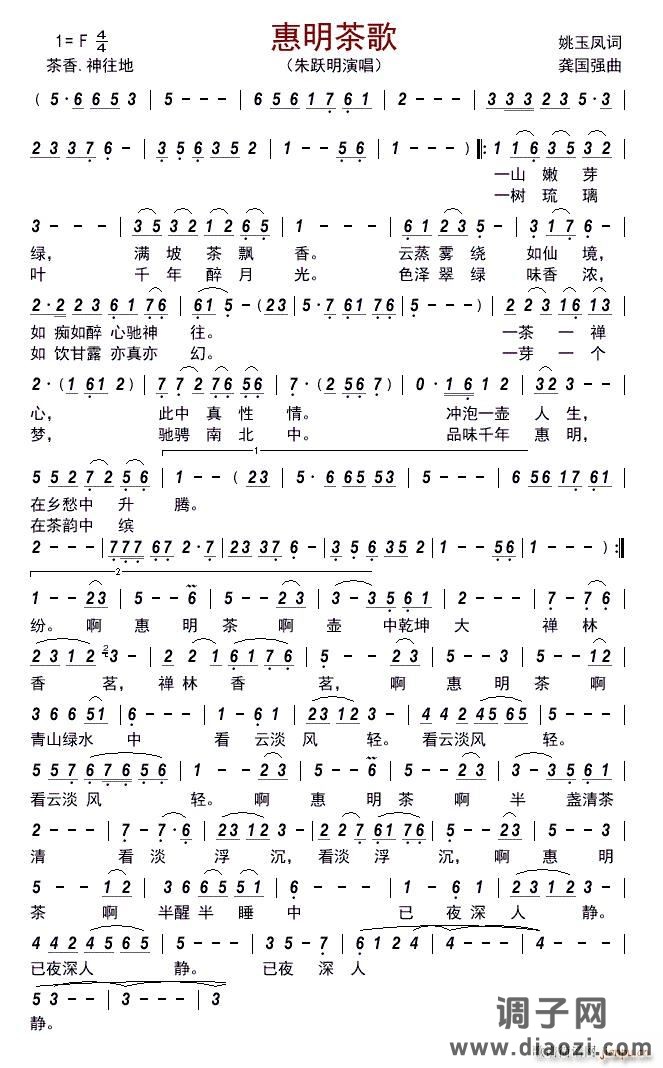 惠明茶歌
1= F 4/4
姚玉凤词
茶香.神往地
（朱跃明演唱）
龚国强曲
( 5· 6 6 5 3 | 5 - - - | 6 5 6 1 1 7 6 1 | 2 - - - | 3 3 3 3 2 3 5· 3 |
2 3 3 7 6 - | 3 5 6 3 5 2 | 1 - - 5 6 | 1 - - - ) ‖: 1 1 6 3 5 3 2 |
一山 嫩 芽
一树 琉 璃
3 - - - | 3 5 3 2 1 2 6 5 | 1 - - - | 6 1 2 3 5 - | 3 1 7 6 - |
绿， 满 坡 茶 飘 香。 云蒸 雾 绕 如仙 境，
叶 千 年 醉 月 光。 色泽 翠 绿 味香 浓，
2· 2 2 3 6 1 7 6 | 6 1 5 - ( 2 3 | 5· 7 6 1 7 6 | 5 - - - ) | 2 2 3 1 6 1 3 |
如 痴如醉 心驰神 往。 一茶 一 禅
如 饮甘露 亦真亦 幻。 一芽 一 个
2· ( 1 6 1 2 ) | 7 7 2 7 6 5 6 | 7· ( 2 5 6 7 ) | 0· 1 6 1 2 | 3 2 3 - |
心， 此中 真 性 情。 冲泡一壶 人 生，
梦， 驰骋 南 北 中。 品味千年 惠 明，
1
5 5 2 7 2 5 6 | 1 - - ( 2 3 | 5· 6 6 5 5 3 | 2 - - - | 6 5 6 1 1 7 6 1 |
在乡愁中 升 腾。
在茶韵中 缤
2 - - - | 7 7 7 6 7 2· 7 | 2 3 3 7 6 - | 3 5 6 3 5 2 | 1 - - 5 6 | 1 - - - ) :‖
2
1 - - 2 3 | 5 - - 6 | 5 - - 2 3 | 3 - 3 5 6 1 | 2 - - - | 7 - 7 6 |
纷。 啊 惠 明 茶 啊 壶 中乾坤 大 禅 林
2 3 1 2 2 3 - | 2 2 1 6 1 7 6 | 5 - - 2 3 | 5 - - 3 | 5 - - 1 2 |
香 茗， 禅林 香 茗， 啊 惠 明 茶 啊
3 6 6 5 1 | 2 - - - | 1 - 6 1 | 2 3 1 2 3 - | 4 4 2 4 5 6 5 | 5 - - - |
青山绿水 中 看 云淡 风 轻。 看云淡风 轻。
5 5 7 6 7 6 5 6 | 1 - - 2 3 | 5 - - 6 | 5 - - 2 3 | 3 - 3 5 6 1 |
看云淡 风 轻。 啊 惠 明 茶 啊 半 盏清茶
2 - - - | 7 - 7· 6 | 2 3 1 2 3 - | 2 2 7 6 1 7 6 | 5 - - 2 3 | 5 - - 3 |
清 看 淡 浮 沉，看淡 浮 沉，啊 惠 明
5 - - 1 2 | 3 6 6 5 5 1 | 2 - - - | 2 - - - | 1 - 6 1 | 2 3 1 2 3 - |
茶 啊 半醒 半 睡 中 已 夜 深 人 静。
4 4 2 4 5 6 5 | 5 - - - | 4 4 2 4 - | 4 - - - |
已夜深人 静。 已夜 深 人
5 3 - - | 5 - - - |
静。
调子网
www.diaozi.com